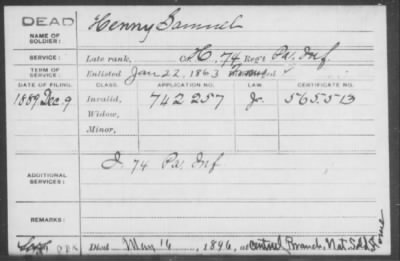 DEAD
NAME OF SOLDIER: Henny Samuel
SERVICE: Late rank, Co. H, 74 Reg't Pa. Inf.
TERM OF SERVICE: Enlisted Jan 22, 1863
DATE OF FILING. CLASS. APPLICATION NO. LAW. CERTIFICATE NO.
1889 Dec. 9 Invalid, 742.257 Jr. 565.513
Widow,
Minor,
ADDITIONAL SERVICES: I 74 Pa. Inf.
REMARKS:
Died May 16, 1896, at Central Branch, Nat. Sold. Home